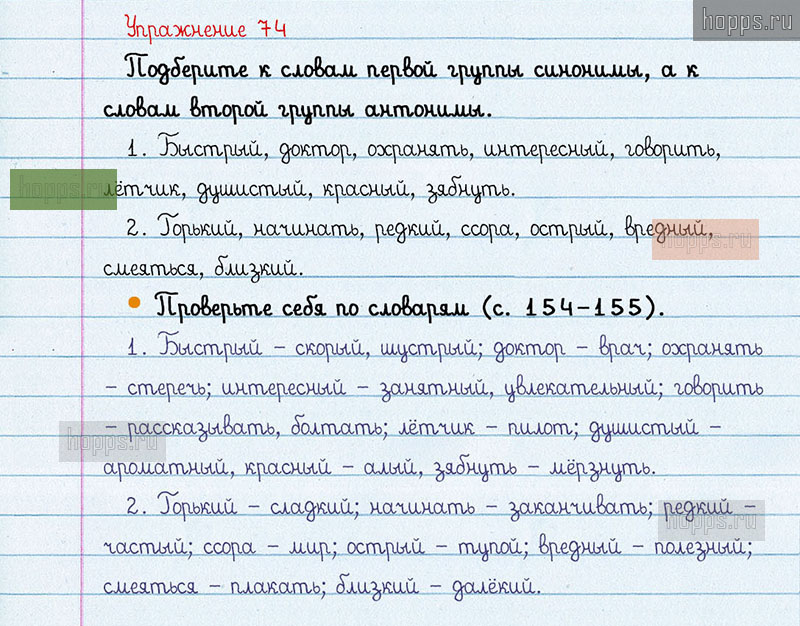 hopps.ru
Упражнение 74
Подберите к словам первой группы синонимы, а к
словам второй группы антонимы.
1. Быстрый, доктор, охранять, интересный, говорить,
лётчик, душистый, красный, зябнуть.
hopps.ru
2. Горький, начинать, редкий, ссора, острый, вредный,
hopps.ru
смеяться, близкий.
• Проверьте себя по словарям (с. 154–155).
1. Быстрый – скорый, шустрый; доктор – врач; охранять
– стеречь; интересный – занятный, увлекательный; говорить
– рассказывать, болтать; лётчик – пилот; душистый –
hopps.ru
ароматный, красный – алый, зябнуть – мёрзнуть.
2. Горький – сладкий; начинать – заканчивать; редкий –
hopps.ru
частый; ссора – мир; острый – тупой; вредный – полезный;
смеяться – плакать; близкий – далёкий.